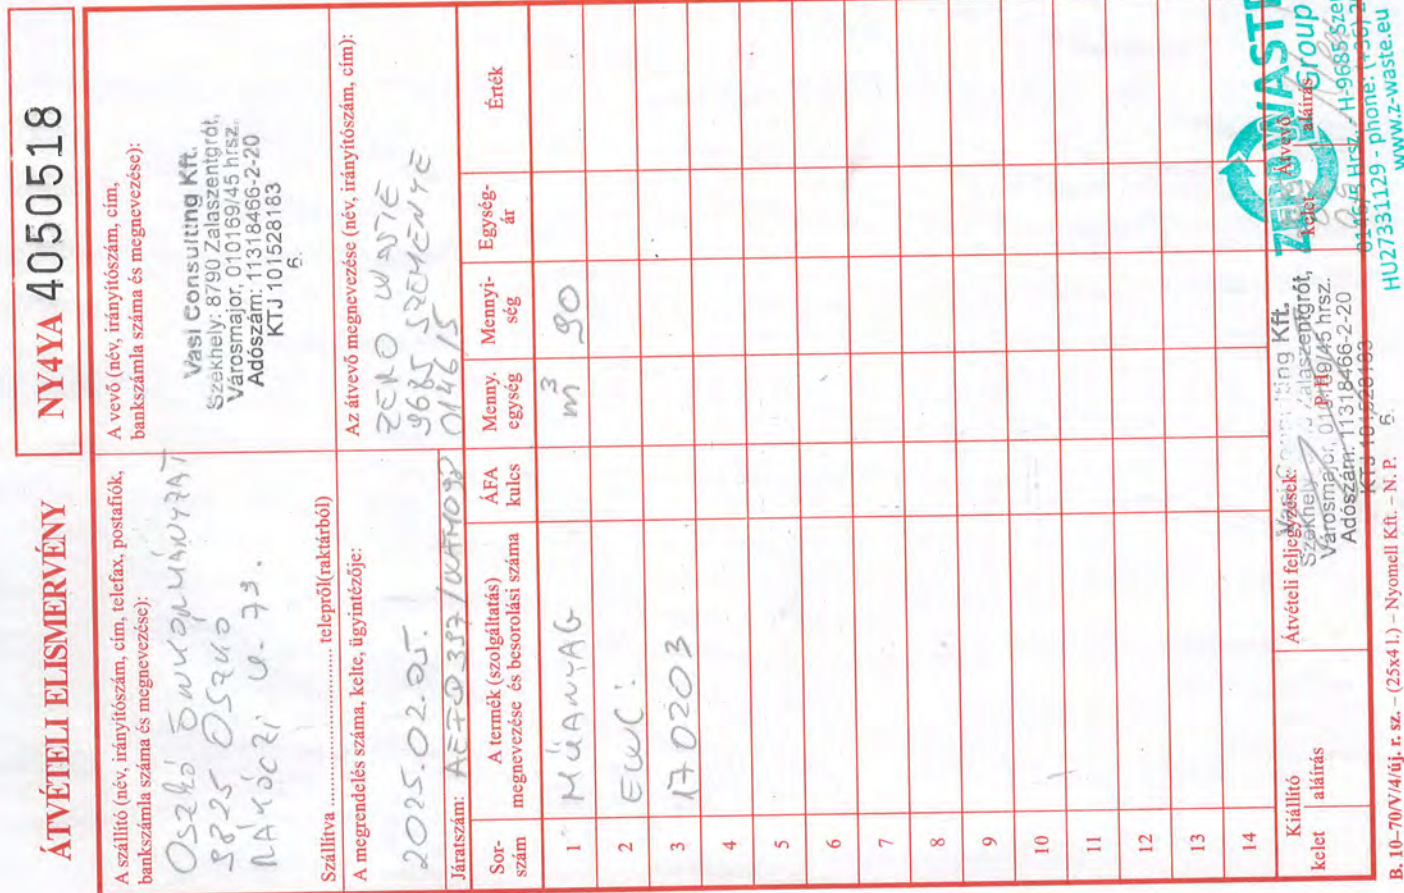 ÁTVÉTELI ELISMERVÉNY
NY4YA 4050518
A szállító (név, irányítószám, cím, telefax, postafiók,
bankszámla száma és megnevezése):
Oszkó
9825 Oszkó
Rákóczi u. 73.
Szállítva ........................ telepről(raktárból)
A vevő (név, irányítószám, cím,
bankszámla száma és megnevezése):
Vasi Consulting Kft.
Székhely: 8790 Zalaszentgrót,
Városmajor, 010169/45 hrsz.
Adószám: 11318466-2-20
KTJ 101528183
6.
A megrendelés száma, kelte, ügyintézője:
2025.02.05.
Járatszám:
Az átvevő megnevezése (név, irányítószám, cím):
ZERO WASTE
9685 SZEMENYE
0146/5
Sor-
szám
A termék (szolgáltatás)
megnevezése és besorolási száma
ÁFA
kulcs
Menny.
egység
Mennyi-
ség
Egység-
ár
Érték
1 MŰANYAG m³ 90
2 EWC:
3 170203
4
5
6
7
8
9
10
11
12
13
14
Kiállító
kelet aláírás
Átvételi feljegyzések:
P. H.
Átvevő
kelet aláírás
Kft.
Székhely: Zalaszentgrót,
Városmajor, 010169/45 hrsz.
Adószám: 11318466-2-20
KTJ 101528183
6.
ZEROWASTE
Group
0146/5 Hrsz. H-9685 Szem
HU27331129 - phone: (+36) 2
www.z-waste.eu
B. 10–70/V/4/új. r. sz. – (25x4 l.) – Nyomell Kft. – N. P.